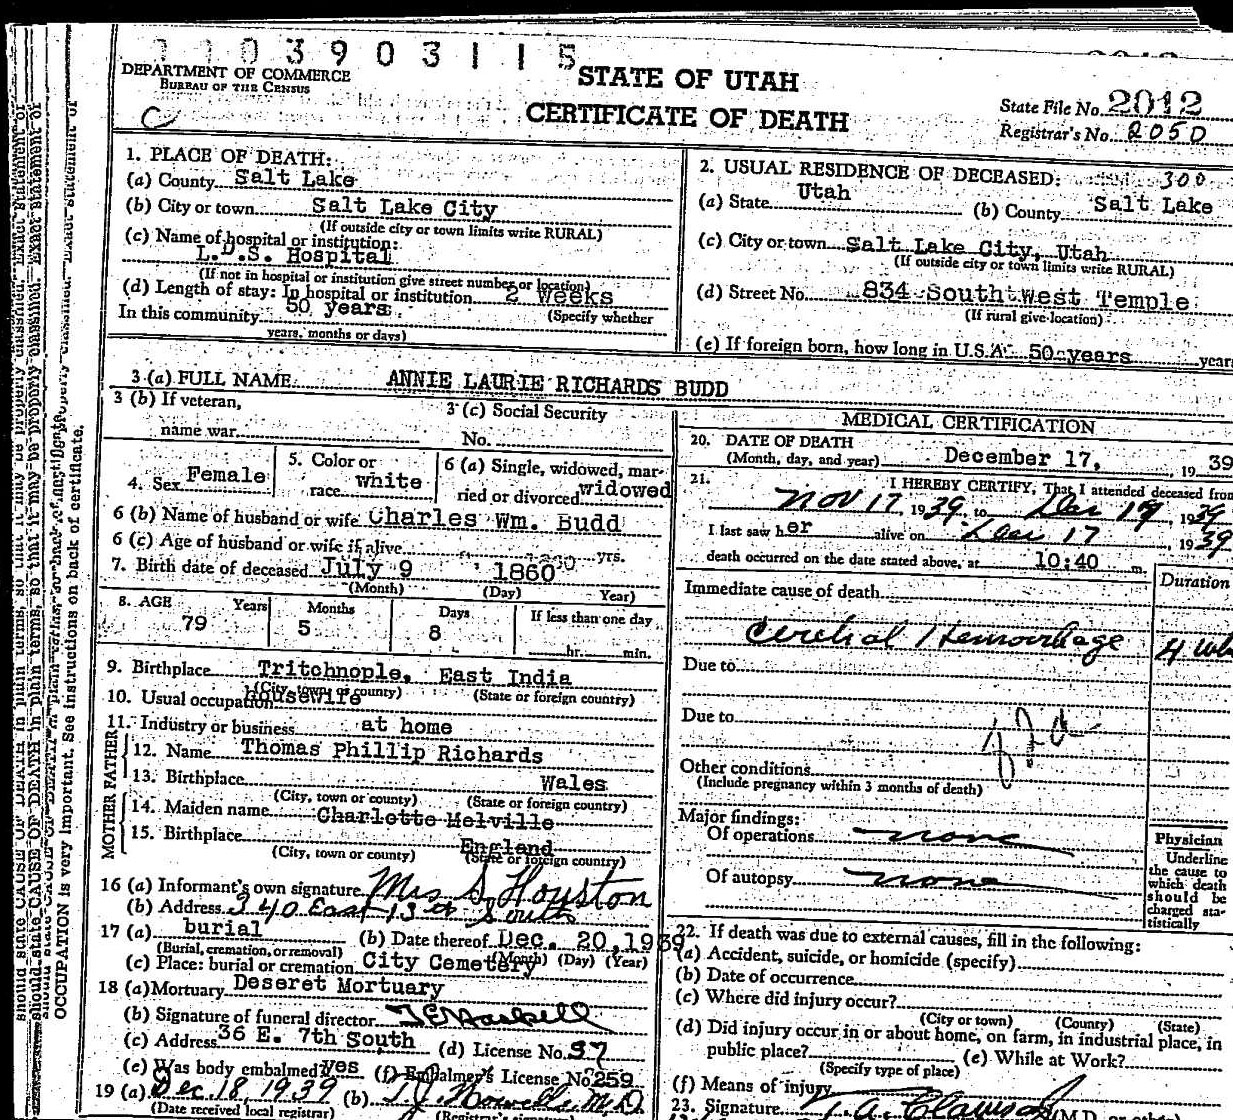 1103903115
DEPARTMENT OF COMMERCE
BUREAU OF THE CENSUS
C
STATE OF UTAH
CERTIFICATE OF DEATH
State File No. 2012
Registrar's No. 2050
1. PLACE OF DEATH:
(a) County Salt Lake
(b) City or town Salt Lake City
(If outside city or town limits write RURAL)
(c) Name of hospital or institution:
L.D.S. Hospital
(If not in hospital or institution give street number or location)
(d) Length of stay: In hospital or institution 2 Weeks
In this community 50 years. (Specify whether
years, months or days)
2. USUAL RESIDENCE OF DECEASED: 300
(a) State Utah (b) County Salt Lake
(c) City or town Salt Lake City, Utah
(If outside city or town limits write RURAL)
(d) Street No. 834 South West Temple
(If rural give location)
(e) If foreign born, how long in U.S.A. 50 years years
3 (a) FULL NAME ANNIE LAURIE RICHARDS BUDD
3 (b) If veteran, name war
3 (c) Social Security No.
4. Sex Female
5. Color or race White
6 (a) Single, widowed, married or divorced widowed
6 (b) Name of husband or wife Charles Wm. Budd
6 (c) Age of husband or wife if alive yrs.
7. Birth date of deceased July 9 1860
(Month) (Day) Year)
8. AGE Years Months Days If less than one day
79 5 8 hr. min.
9. Birthplace Tritchnople, East India
(City, town or county) (State or foreign country)
10. Usual occupation Housewife
11. Industry or business at home
FATHER
12. Name Thomas Phillip Richards
13. Birthplace Wales
(City, town or county) (State or foreign country)
MOTHER
14. Maiden name Charlotte Melville
15. Birthplace England
(City, town or county) (State or foreign country)
16 (a) Informant's own signature Mrs S. Houston
(b) Address 340 East 13th South
17 (a) burial (b) Date thereof Dec. 20, 1939
(Burial, cremation, or removal) (Month) (Day) (Year)
(c) Place: burial or cremation City Cemetery
18 (a) Mortuary Deseret Mortuary
(b) Signature of funeral director
(c) Address 36 E. 7th South (d) License No. 97
(e) Was body embalmed? yes (f) Embalmer's License No. 259
19 (a) Dec 18, 1939 (b) M.D.
(Date received local registrar) (Registrar's
MEDICAL CERTIFICATION
20. DATE OF DEATH
(Month, day, and year) December 17, 1939
21. I HEREBY CERTIFY, That I attended deceased from
Nov 17 1939 to Dec 17, 1939
I last saw her alive on Dec 17, 1939
death occurred on the date stated above, at 10:40 m.
Immediate cause of death Duration
Cerebral Hemorrhage 4 wks
Due to
Due to
Other conditions
(Include pregnancy within 3 months of death)
Major findings:
Of operations none
Of autopsy none
Physician
Underline
the cause to
which death
should be
charged sta-
tistically
22. If death was due to external causes, fill in the following:
(a) Accident, suicide, or homicide (specify)
(b) Date of occurrence
(c) Where did injury occur?
(City or town) (County) (State)
(d) Did injury occur in or about home, on farm, in industrial place, in
public place? (e) While at Work?
(Specify type of place)
(f) Means of injury
23. Signature T. A. Clawson (M.D. or other)
should state CAUSE OF DEATH in plain terms, so that it may be properly classified. Exact statement of
OCCUPATION is very important. See instructions on back of certificate.